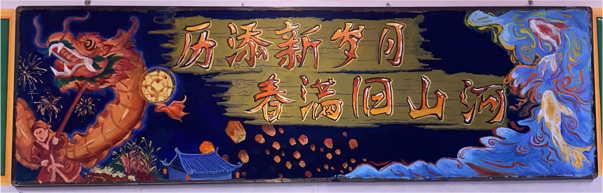 历添新岁月
春满旧山河